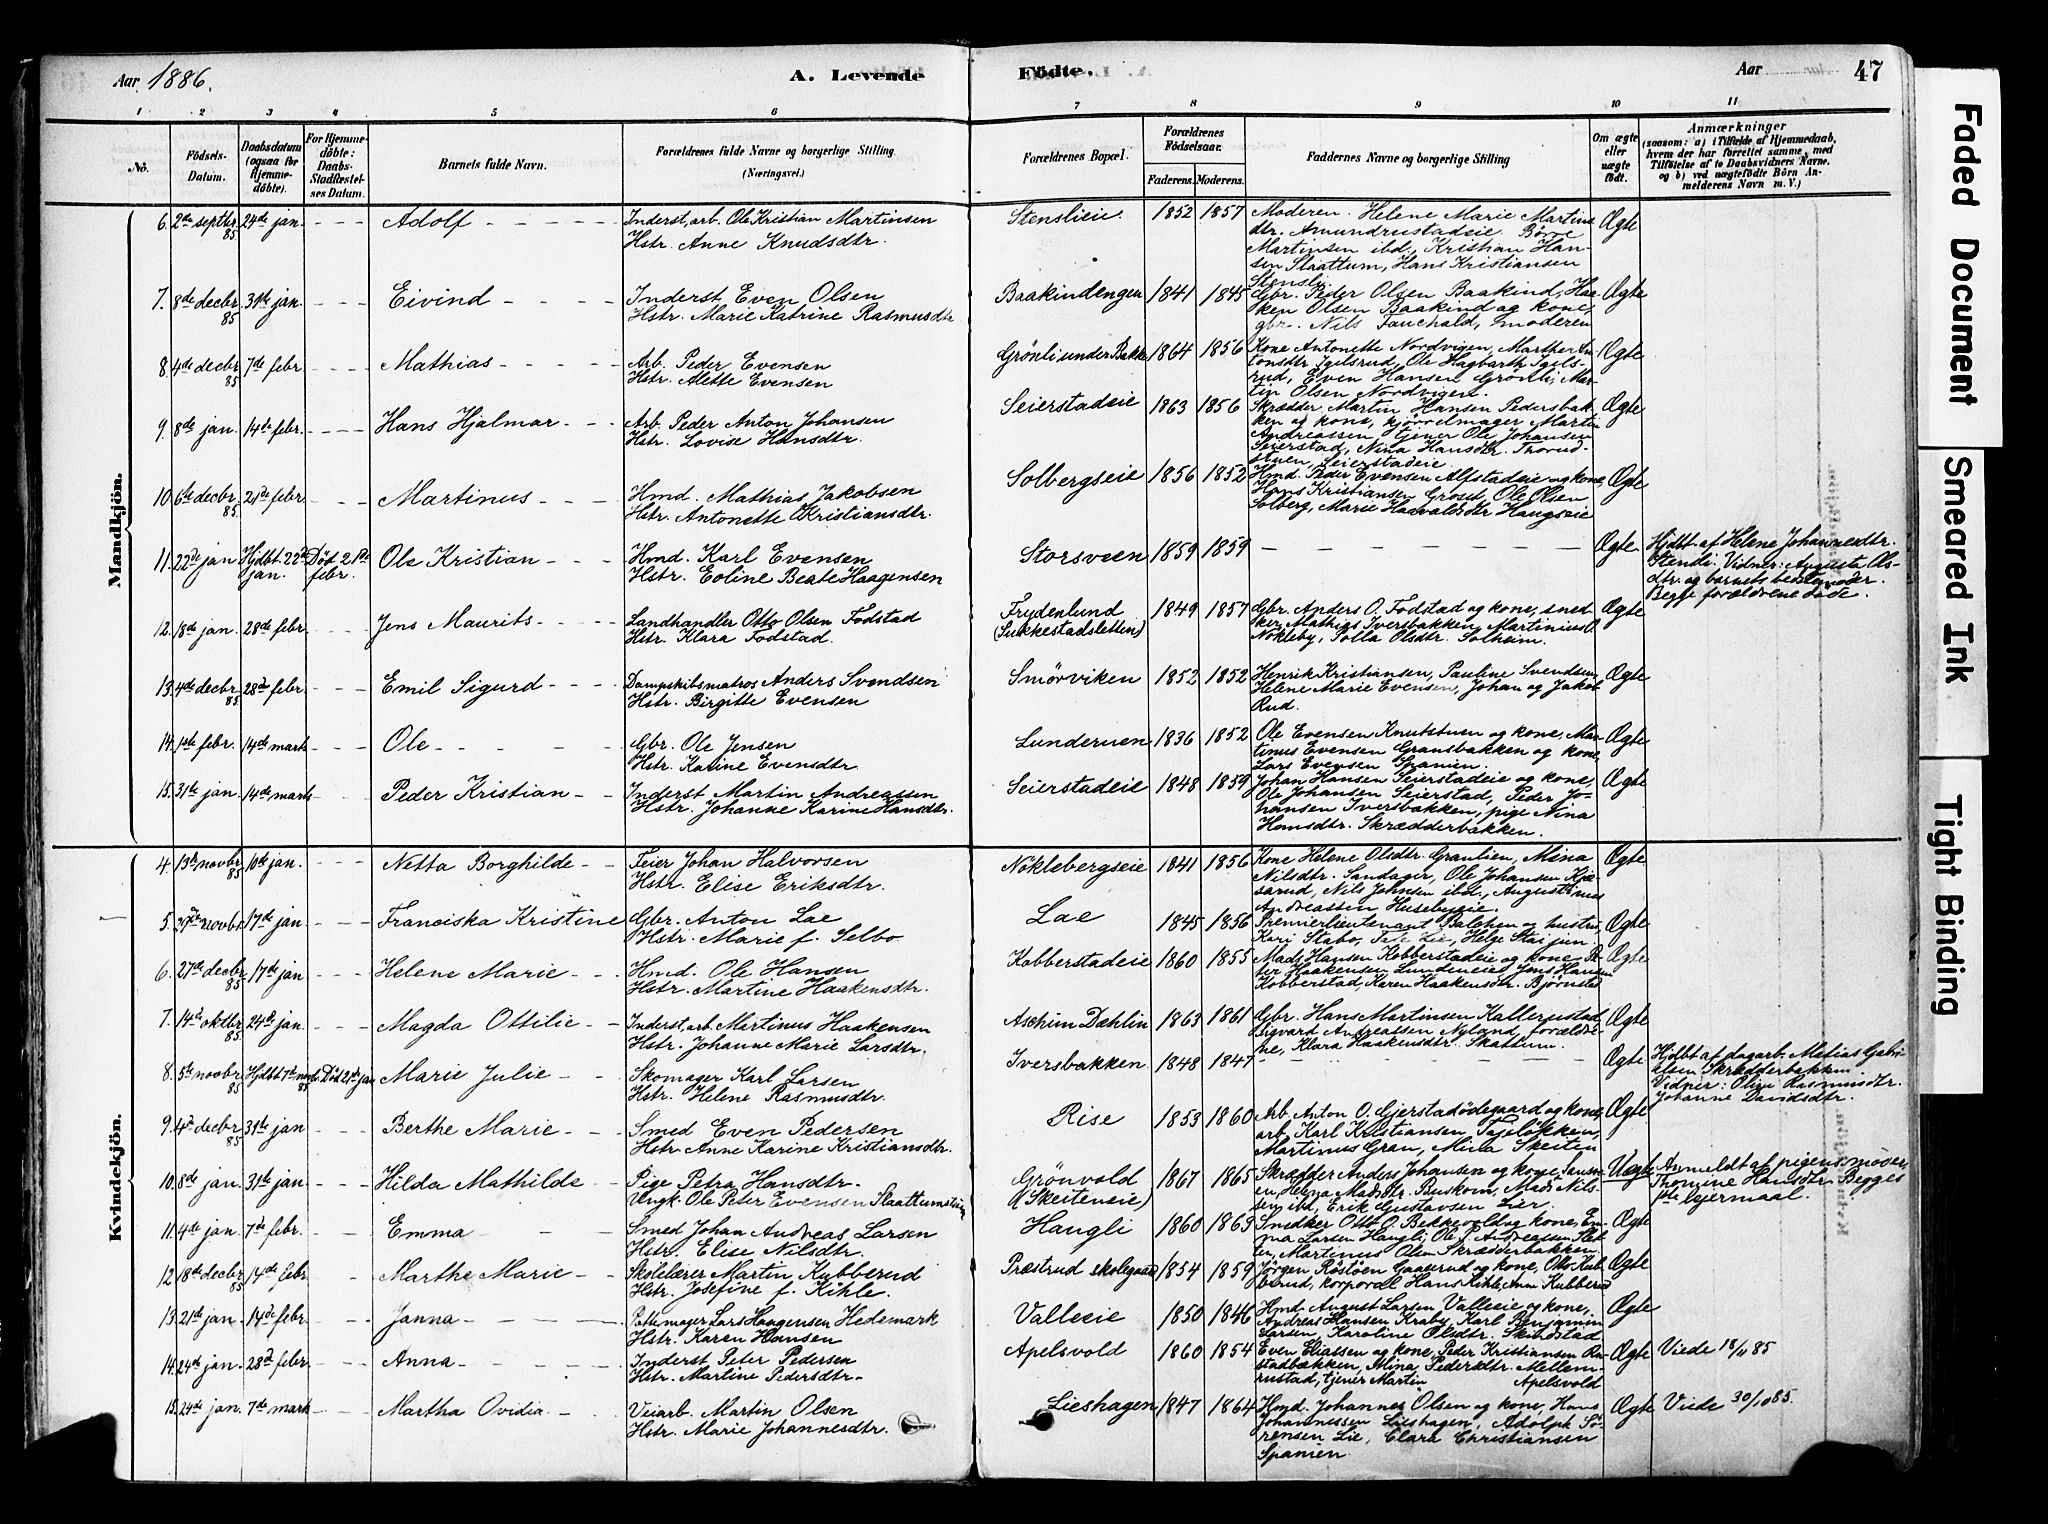 Aar 1886.
A. Levende
Födte.
Aar
47
1 2 3 4 5 6 7 8 9 10 11
No.
Födsels-Datum.
Daabsdatum (ogsaa for Hjemmedöbte).
For Hjemmedöbte: Daabs-Stadfæstelses Datum.
Barnets fulde Navn.
Forældrenes fulde Navne og borgerlige Stilling
(Næringsvei.)
Forældrenes Bopæl.
Forældrenes Födselsaar.
Faderens. Moderens.
Faddernes Navne og borgerlige Stilling
Om ægte eller uægte födt.
Anmærkninger
(saasom: a) i Tilfælde af Hjemmedaab, hvem der har forrettet samme, med Tilföielse af to Daabsvidners Navne. og b) ved uægtefödte Börn Anmelderens Navn m. V.)
Mandkjön.
6. 2de septbr 85 24de jan. Adolf Inderst, arb. Ole Kristian Martinsen Stenslieie. 1852 1857 Moderen. Helene Marie Martins Ægte
Hstr. Anne Knudsdtr. dtr. Amundrustadeie. Børre
Martinsen ibd, Kristian Han-
sen Slaattum, Hans Kristiansen
Stensli.
7. 8de decbr 85 31te jan Eivind Inderst. Even Olsen Baakindengen 1841 1845 Gbr. Peder Olsen Baakind, Haa- Ægte
Hstr. Marie Katrine Rasmusdtr ken Olsen Baakind og kone,
gbr. Nils Fauchald, moderen
8. 4de decbr 85 7de febr Mathias Arb. Peder Evensen Grønli under Bakke 1864 1856 Kone Antonette Nordvigen, Marthe An- Ægte
Hstr. Alette Evensen tonsdtr. Igelsrud, Ole Hagbarth Igels-
rud, Even Hansen Grønli, Mar-
tin Olsen Nordvigen.
9. 8de jan. 14de febr. Hans Hjalmar Arb. Peder Anton Johansen Seierstadeie 1863 1856 Skrædder Martin Hansen Pedersbak- Ægte
Hstr. Lovise Hansdtr. ken og kone, hjørrelmager Martin
Andreassen tjener Ole Johansen
Seierstad, Nina Hansdtr. Thorud-
stuen, Seierstadeie.
10. 6te decbr 85. 21de febr Martinus Hmd. Mathias Jakobsen Solbergseie 1856 1852 Hmd. Peder Evensen Alfstadeie og kone, Ægte
Hstr. Antonette Kristiansdtr. Hans Kristiansen Groset, Ole Olsen
Solberg, Marie Hasvaldsdtr Haugseie
11. 22de jan Hjdbt 22de jan. Död 21de febr. Ole Kristian Hmd. Karl Evensen Storsveen 1859 1859 Ægte. Hjdbt af Helene Johannesdtr.
Hstr. Eoline Beate Haagensen Stensli. Vidner: Augusta Ols-
dtr. og barnets bestemoder.
Begge forældrene döde.
12. 18de jan. 28de febr. Jens Maurits Landhandler Otto Olsen Fodstad Frydenlund 1849 1857 Gbr. Anders O. Fodstad og kone, sned- Ægte
Hstr. Klara Fodstad. (Sukkestadsletten) ker Mathias Iversbakken, Martinius O.
Nøkleby, Polla Olsdtr. Solheim.
13. 4de decbr 85 28de febr. Emil Sigurd Dampskibsmatros Anders Svendsen Smörviken 1852 1852 Henrik Kristiansen, Pauline Svendsen Ægte
Hstr. Birgitte Evensen Helene Marie Evensen, Johan og Jakob
Rud.
14. 1ste febr. 14de marts Ole Gbr. Ole Jensen Lunderuen 1836 1852 Ole Evensen Knutstuen og kone, Mar- Ægte
Hstr. Karine Evensdtr tinus Evensen Gransbakken og kone,
Lars Evensen Spanien.
15. 31te jan. 14de marts Peder Kristian Inderst Martin Andreassen Seierstadeie 1848 1859 Johan Hansen Seierstadeie og kone, Ægte
Hstr. Johanne Karine Hansdtr. Ole Johansen Seierstad, Peder Jo-
hansen Iversbakken, pige Nina
Hansdtr. Skrædderbakken.
Kvindekjön.
4. 13de novbr 85 10de jan. Netta Borghilde Feier Johan Halvorsen Nöklebergseie 1841 1856 Kone Helene Olsdtr. Graulien, Mina Ægte
Hstr. Elise Eriksdtr. Nilsdtr. Sandager, Ole Johansen Kjø-
sarud, Nils Johnsen ibd., Augustinus
Andreassen Husebyeie.
5. 30te novbr. 17de jan Franciska Kristine Gbr. Anton Lae Lae 1845 1856 Premierlieutenant Balchen og hustru Ægte
Hstr. Marie f. Selbo. Kari Stabo, Helge Stai jun.
6. 27de decbr 85 17de jan Helene Marie Hmd. Ole Hansen Kobberstadeie 1860 1855 Mads Hansen Kobberstadeie og kone, Pe- Ægte
Hstr. Martine Haakensdtr. ter Haakensen Lundeneie, Jens Hansen
Kobberstad, Karen Haakensdtr. Bjørnstad
7. 14de oktbr 85. 24de jan. Magda Ottilie Inderst, arb. Martinus Haakensen Aschim Dæhlin 1863 1861 Gbr. Hans Martinsen Kallerustad, Ægte
Hstr. Johanne Marie Larsdtr. Sigvard Andreassen Nyland, forældre-
ne, Klara Haakensdtr. Skattum.
8. 5te novbr 85 Hjdbt 7de novbr. 85 Död 21de jan Marie Julie Skomager Karl Larsen Iversbakken 1848 1847 Ægte Hjdbt af dagarb. Matias Gabri-
Hstr. Helene Rasmusdtr. elsen Skrædderbakken
Vidner: Oline Rasmusdtr.
Johanne Davidsdtr.
9. 4de decbr 85 31te jan Berthe Marie Smed Even Pedersen Rise 1853 1860 Arb. Anton O. Gjerstadödegaard og kone, Ægte
Hstr. Anne Karine Kristiansdtr. arb. Karl Kristiansen Tajeløkken,
Martinus Gran, Mina Skeiten
10. 8de jan. 31te jan Hilda Mathilde Pige Petra Hansdtr. Grönvold 1867 1865 Skrædder Anders Johansen og kone Uægte Anmeldt af pigens moder,
Ungk. Ole Peter Evensen Slaattumseie (Skeiteneie) Helena Madsdtr. Buskom, Mads Nils- Thomine Hansdtr. Begges
sen ibd, Erik Gustavsen Lier. 1ste leiermaal.
11. 4de jan 7de febr. Emma Smed Johan Andreas Larsen Haugli 1860 1863 Snedker Otto O. Bekkevold og kone, Em- Ægte
Hstr. Elise Nilsdtr. ma Larsen Haugli, Ole P. Andreassen
Martinus Olsen Skrædderbakken
12. 18de decbr 85 14de febr. Marthe Marie Skolelærer Martin Kubberud Præstrud skolegaard 1854 1859 Jörgen Röstöen Gaaerud og kone, Otto Kub- Ægte
Hstr. Josefine f. Kihle. berud, korporal Hans Kihle, Anne Kubberud
13. 21de jan 14de febr. Janna Pottemager Lars Haagensen Hedemark Valleeie 1850 1846 Hmd. August Larsen Valleeie og kone, Ægte
Hstr. Karen Hansen Andreas Hansen Kraby, Karl Benjamin
Larsen, Karoline Olsdtr. Skindstad
14. 24de jan. 28de febr. Anna Inderst Peter Pedersen Apelsvold 1860 1854 Even Eliassen og kone, Peder Kristiansen Ru- Ægte Viede 18/11 85
Hstr. Martine Pedersdtr. stadbækken, Mina Pedersdtr. Mellem-
rustad, tjener Martin Apelsvold
15. 24de jan. 7de mark Martha Ovidia Veiarb. Martin Olsen Lieshagen 1847 1864 Hmd. Johannes Olsen og kone, Hans Ægte Viede 30/10 85.
Hstr. Marie Johannesdtr. Johannessen Lieshagen, Adolph Sö-
rensen Lie, Clara Christiansen
Spanien
Faded Document
Smeared Ink
Tight Binding